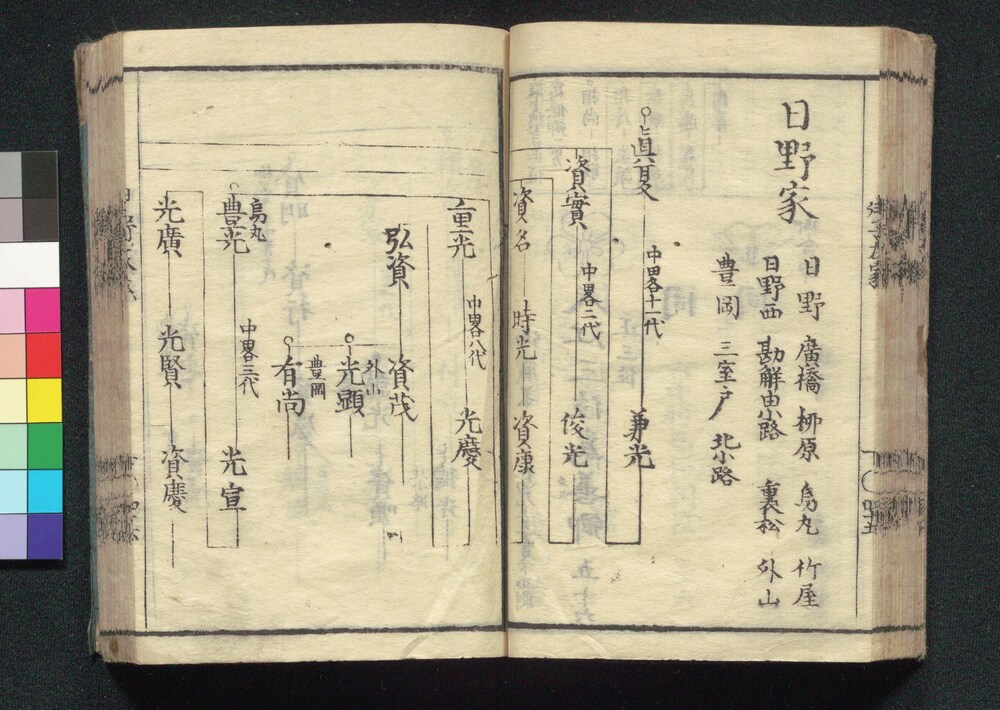 日野家
日野 廣橋 柳原 烏丸 竹屋
日野西 勘解由小路 裏松 外山
豊岡 三室戸 北小路
眞夏 中畧十一代 兼光
資實 中畧二代 俊光
資名 時光 資康
重光 中畧八代 光慶
弘資 資茂
外山
光顕
豊岡
有尚
烏丸
豊光 中畧三代 光宣
光廣 光賢 資慶
四十五